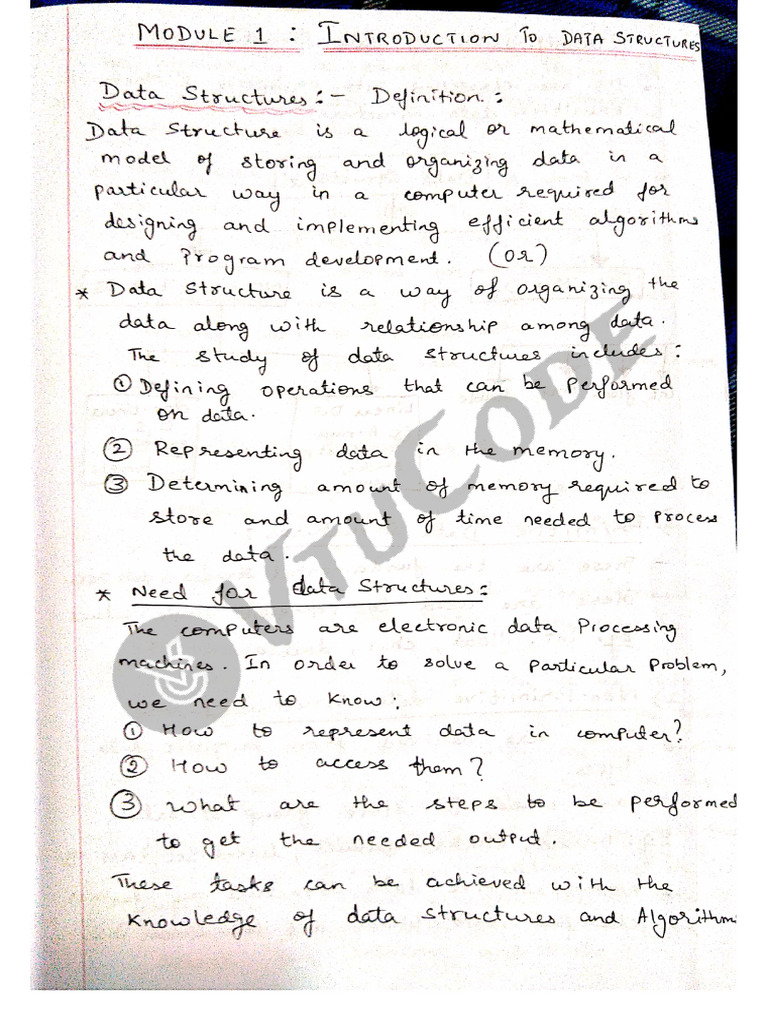 MODULE 1 : INTRODUCTION TO DATA STRUCTURES
Data Structures :- Definition :
Data Structure is a logical or mathematical
model of storing and organizing data in a
particular way in a computer required for
designing and implementing efficient algorithms
and Program development. (OR)
* Data Structure is a way of organizing the
data along with relationship among data.
The study of data structures includes :
① Defining operations that can be performed
on data.
② Representing data in the memory.
③ Determining amount of memory required to
store and amount of time needed to process
the data.
* Need for data Structures :
The computers are electronic data Processing
machines. In order to solve a Particular Problem,
we need to know :
① How to represent data in computer?
② How to access them?
③ What are the steps to be performed
to get the needed output.
These tasks can be achieved with the
knowledge of data structures and Algorithm
VTUCODE